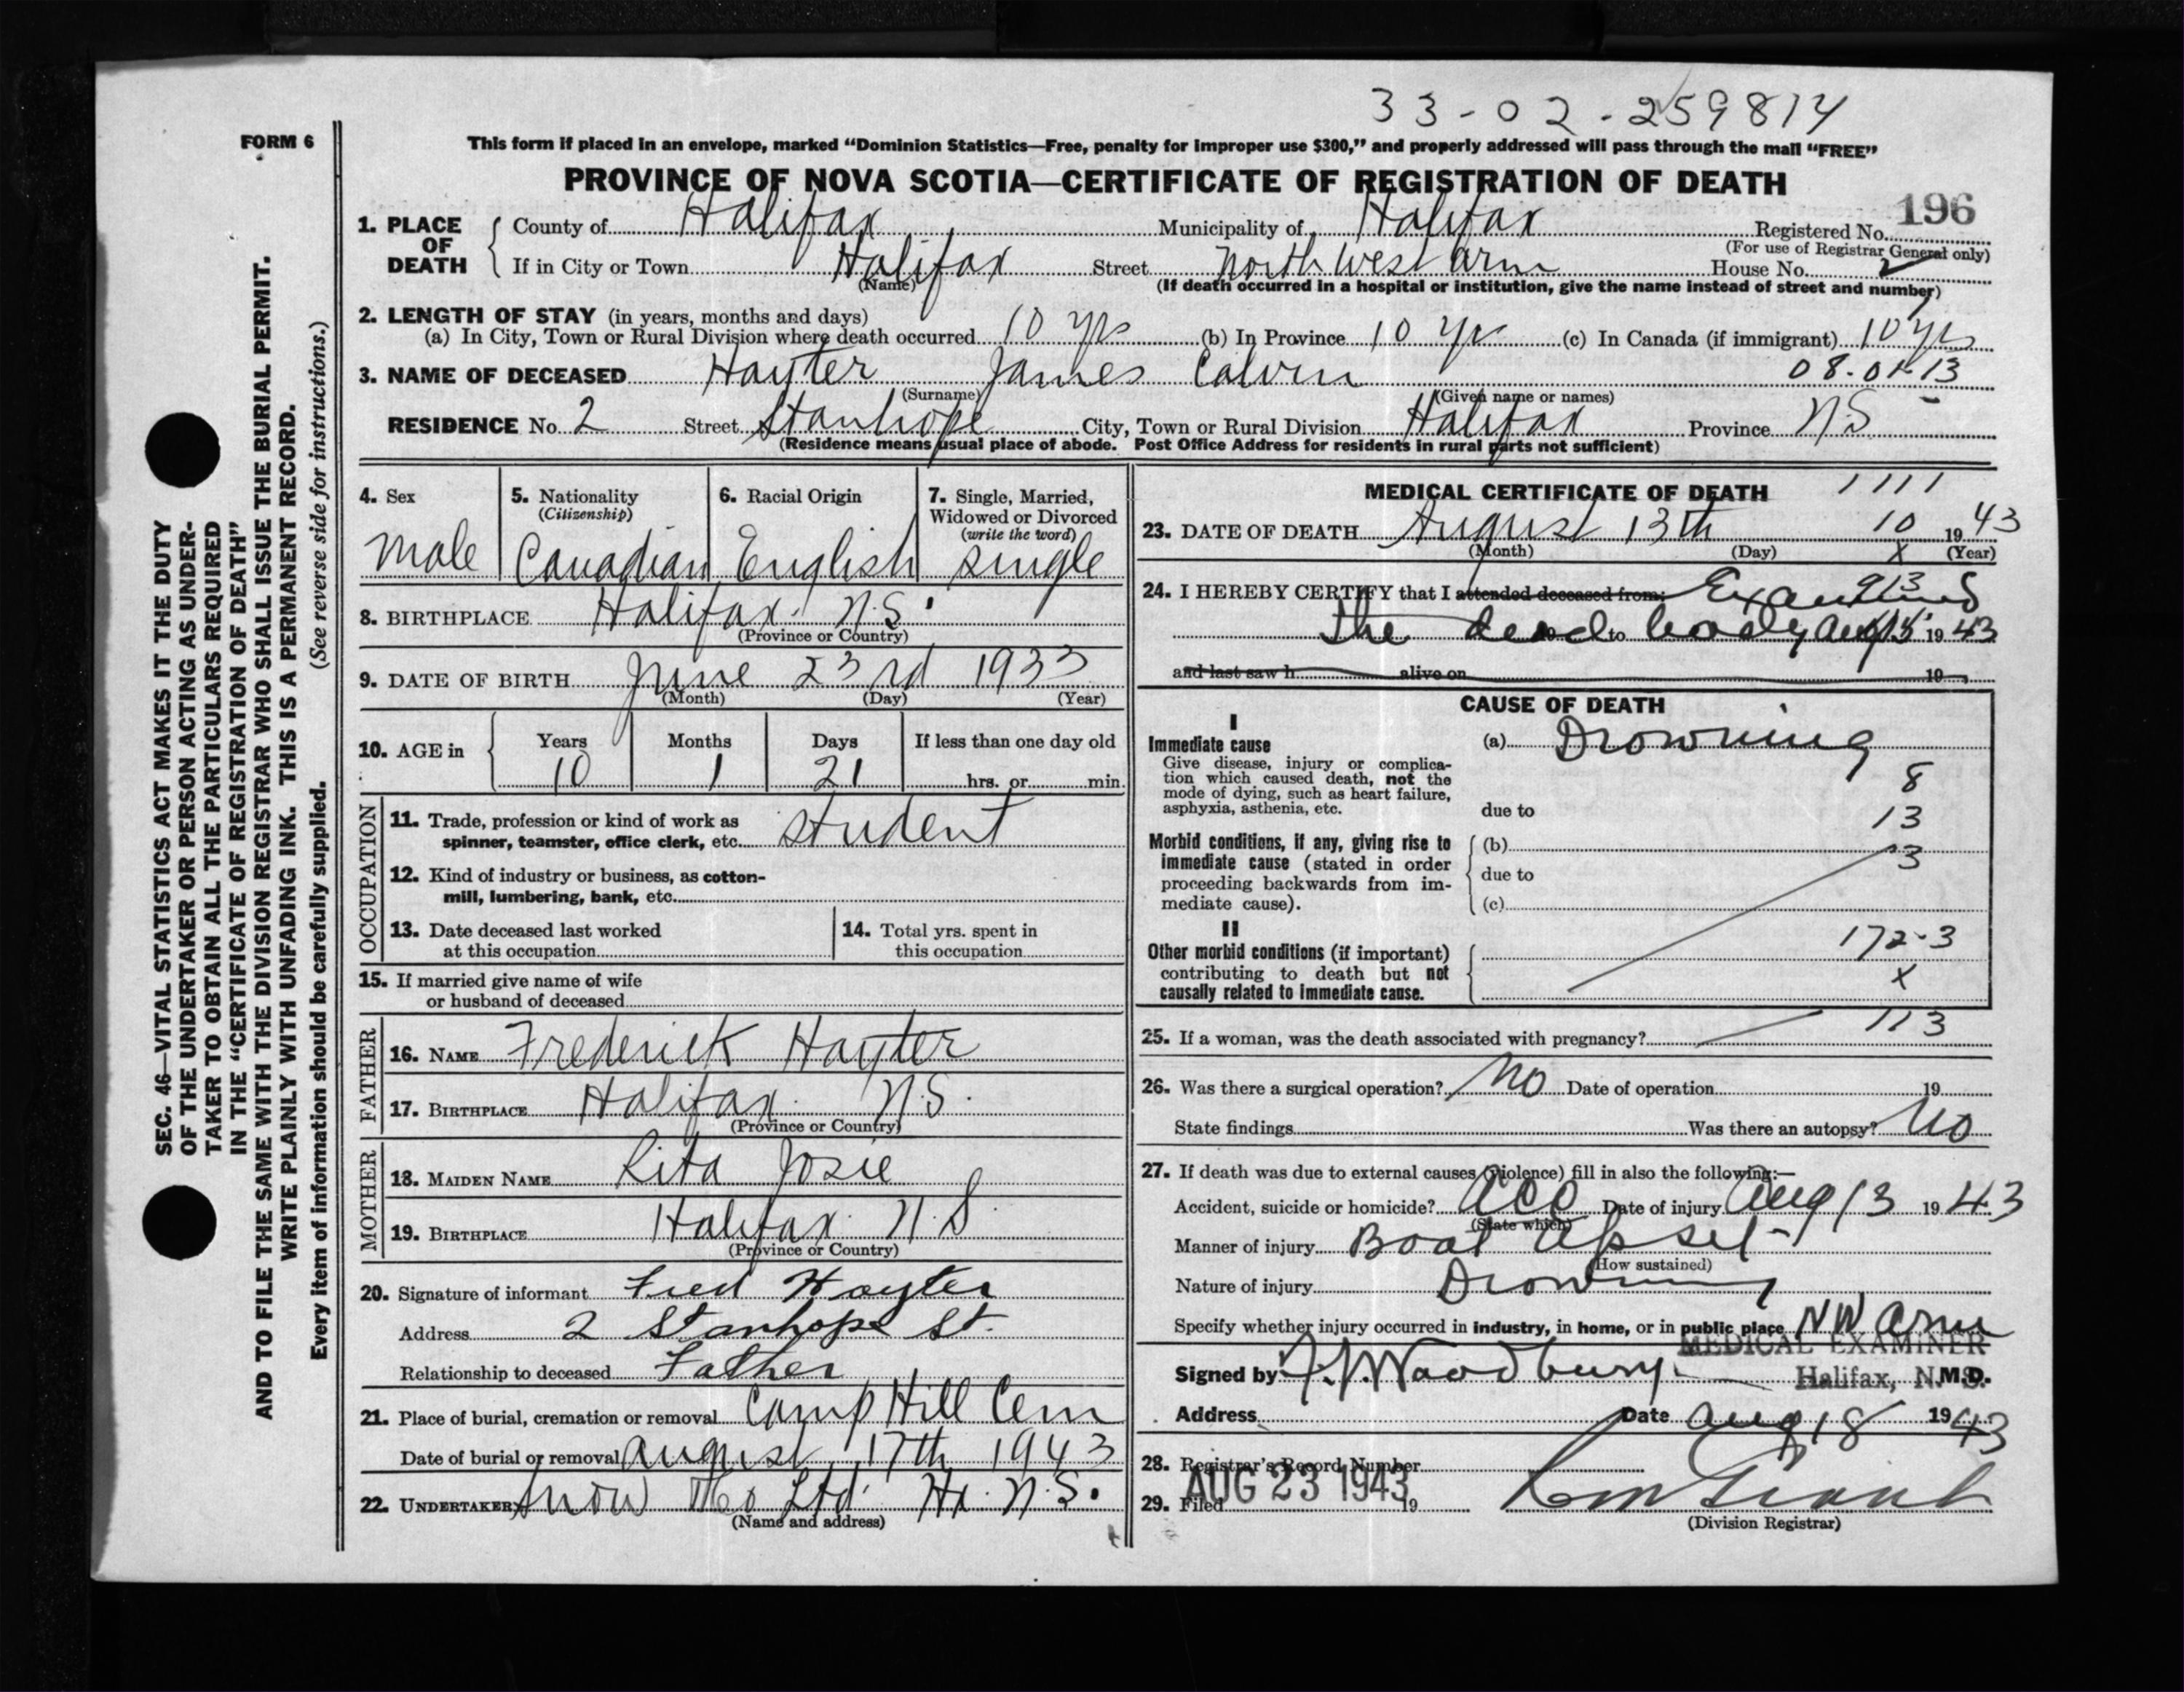 33-02-259814
FORM 6
This form if placed in an envelope, marked “Dominion Statistics—Free, penalty for improper use $300,” and properly addressed will pass through the mail “FREE”
PROVINCE OF NOVA SCOTIA—CERTIFICATE OF REGISTRATION OF DEATH
196
1. PLACE OF DEATH { County of Halifax Municipality of Halifax Registered No.
(For use of Registrar General only)
If in City or Town Halifax Street North West Arm House No.
(Name) (If death occurred in a hospital or institution, give the name instead of street and number)
2. LENGTH OF STAY (in years, months and days)
(a) In City, Town or Rural Division where death occurred 10 yrs (b) In Province 10 yrs (c) In Canada (if immigrant) 10 yrs
08-01-13
3. NAME OF DECEASED Hayter James Calvin
(Surname) (Given name or names)
RESIDENCE No. 2 Street Stanhope City, Town or Rural Division Halifax Province N.S
(Residence means usual place of abode. Post Office Address for residents in rural parts not sufficient)
4. Sex
male
5. Nationality
(Citizenship)
Canadian
6. Racial Origin
English
7. Single, Married,
Widowed or Divorced
(write the word)
single
8. BIRTHPLACE Halifax. N.S.
(Province or Country)
9. DATE OF BIRTH June 23rd 1933
(Month) (Day) (Year)
10. AGE in { Years Months Days If less than one day old
10 1 21 hrs. or min.
OCCUPATION
11. Trade, profession or kind of work as
spinner, teamster, office clerk, etc. student
12. Kind of industry or business, as cotton-
mill, lumbering, bank, etc.
13. Date deceased last worked
at this occupation
14. Total yrs. spent in
this occupation
15. If married give name of wife
or husband of deceased
FATHER
16. NAME Frederick Hayter
17. BIRTHPLACE Halifax. N.S.
(Province or Country)
MOTHER
18. MAIDEN NAME Rita Josie
19. BIRTHPLACE Halifax. N.S
(Province or Country)
20. Signature of informant Fred Hayter
Address 2 Stanhope St.
Relationship to deceased Father
21. Place of burial, cremation or removal Camp Hill Cem
Date of burial or removal August 17th 1943
22. UNDERTAKER Snow & Co Ltd. Hx. N.S.
(Name and address)
MEDICAL CERTIFICATE OF DEATH 1111
23. DATE OF DEATH August 13th 10 1943
(Month) (Day) x (Year)
913
24. I HEREBY CERTIFY that I attended deceased from: Examined
the dead to body Aug 1943
and last saw h alive on 19
CAUSE OF DEATH
I
Immediate cause
Give disease, injury or complica-
tion which caused death, not the
mode of dying, such as heart failure,
asphyxia, asthenia, etc.
(a) Drowning
8
due to 13
Morbid conditions, if any, giving rise to
immediate cause (stated in order
proceeding backwards from im-
mediate cause).
(b)
3
due to
(c)
II
Other morbid conditions (if important)
contributing to death but not
causally related to immediate cause.
172-3
x
25. If a woman, was the death associated with pregnancy? 113
26. Was there a surgical operation? No Date of operation 19
State findings Was there an autopsy? No
27. If death was due to external causes (violence) fill in also the following:—
Accident, suicide or homicide? Acc Date of injury Aug 13 1943
(State which)
Manner of injury Boat upset-
(How sustained)
Nature of injury Drowning
Specify whether injury occurred in industry, in home, or in public place NW Arm
MEDICAL EXAMINER
Signed by Woodbury. Halifax, N.S. M.D.
Address Date Aug 18 1943
28. Registrar's Record Number
29. Filed AUG 23 1943 19
(Division Registrar)
SEC. 46—VITAL STATISTICS ACT MAKES IT THE DUTY
OF THE UNDERTAKER OR PERSON ACTING AS UNDER-
TAKER TO OBTAIN ALL THE PARTICULARS REQUIRED
IN THE “CERTIFICATE OF REGISTRATION OF DEATH”
AND TO FILE THE SAME WITH THE DIVISION REGISTRAR WHO SHALL ISSUE THE BURIAL PERMIT.
WRITE PLAINLY WITH UNFADING INK. THIS IS A PERMANENT RECORD.
Every item of information should be carefully supplied. (See reverse side for instructions.)